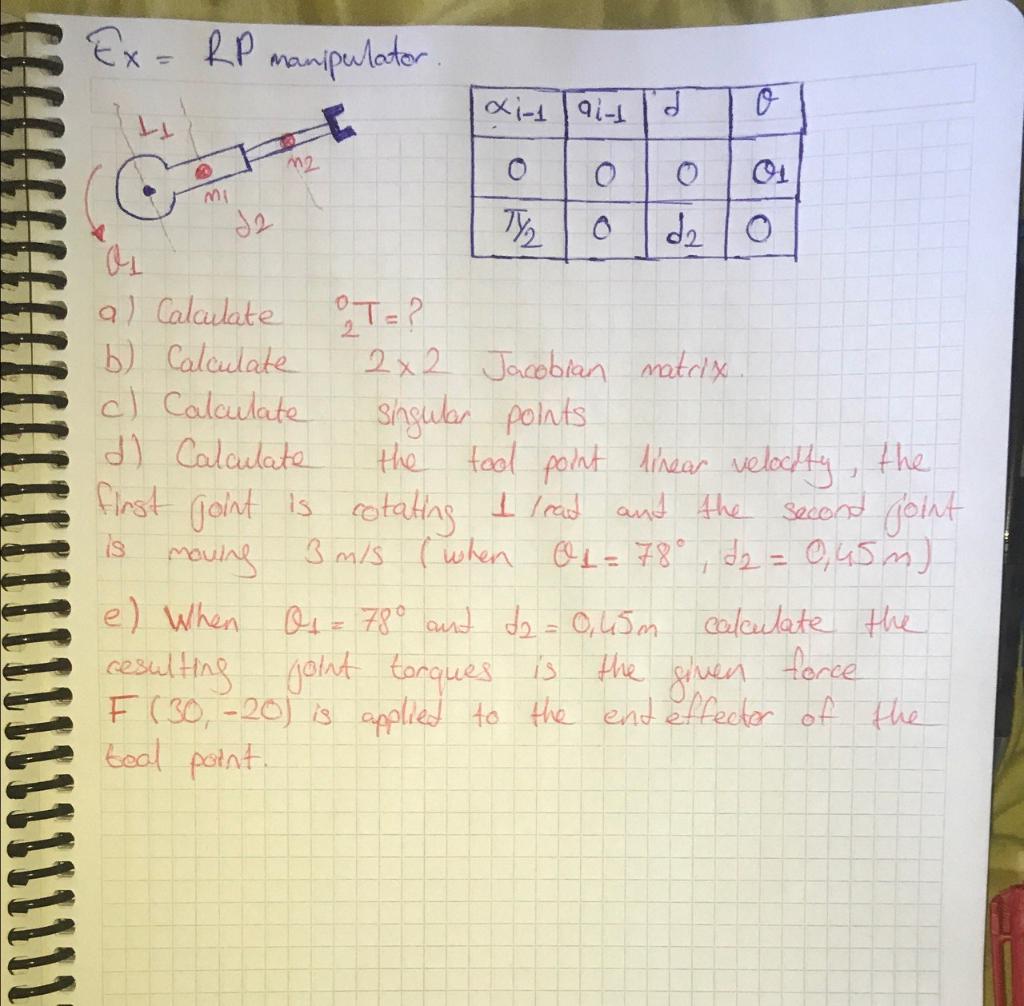 Ex = RP manipulator.
L1
m1
m2
d2
θ1
αi-1 ai-1 d θ
0 0 0 θ1
π/2 0 d2 0
a) Calculate ⁰₂T = ?
b) Calculate 2x2 Jacobian matrix.
c) Calculate singular points
d) Calculate the tool point linear velocity, the
first joint is rotating 1 /rad and the second joint
is moving 3 m/s (when θ1 = 78°, d2 = 0,45m)
e) When θ1 = 78° and d2 = 0,45m calculate the
resulting joint torques is the given force
F (30, -20) is applied to the end effector of the
tool point.